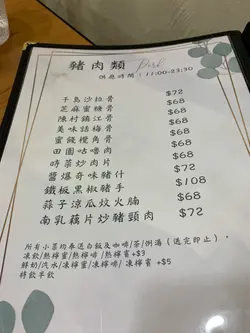 豬肉類 Pork
供應時間：11:00-23:30
千島沙拉骨 $72
芝麻蜜糖骨 $68
陳村鎮江骨 $68
美味話梅骨 $68
蜜餞欖角骨 $68
田園咕嚕肉 $68
時菜炒肉片 $68
醬爆奇味豬什 $72
鐵板黑椒豬手 $108
蒜子涼瓜炆火腩 $68
南乳藕片炒豬頸肉 $72
所有小菜均奉送白飯及咖啡/茶/例湯（送完即止）。
凍飲/熱檸蜜/熱檸啡/熱檸賓+$3
鮮奶/汽水/凍檸蜜/凍檸啡/凍檸賓 +$5
轉飲半飲